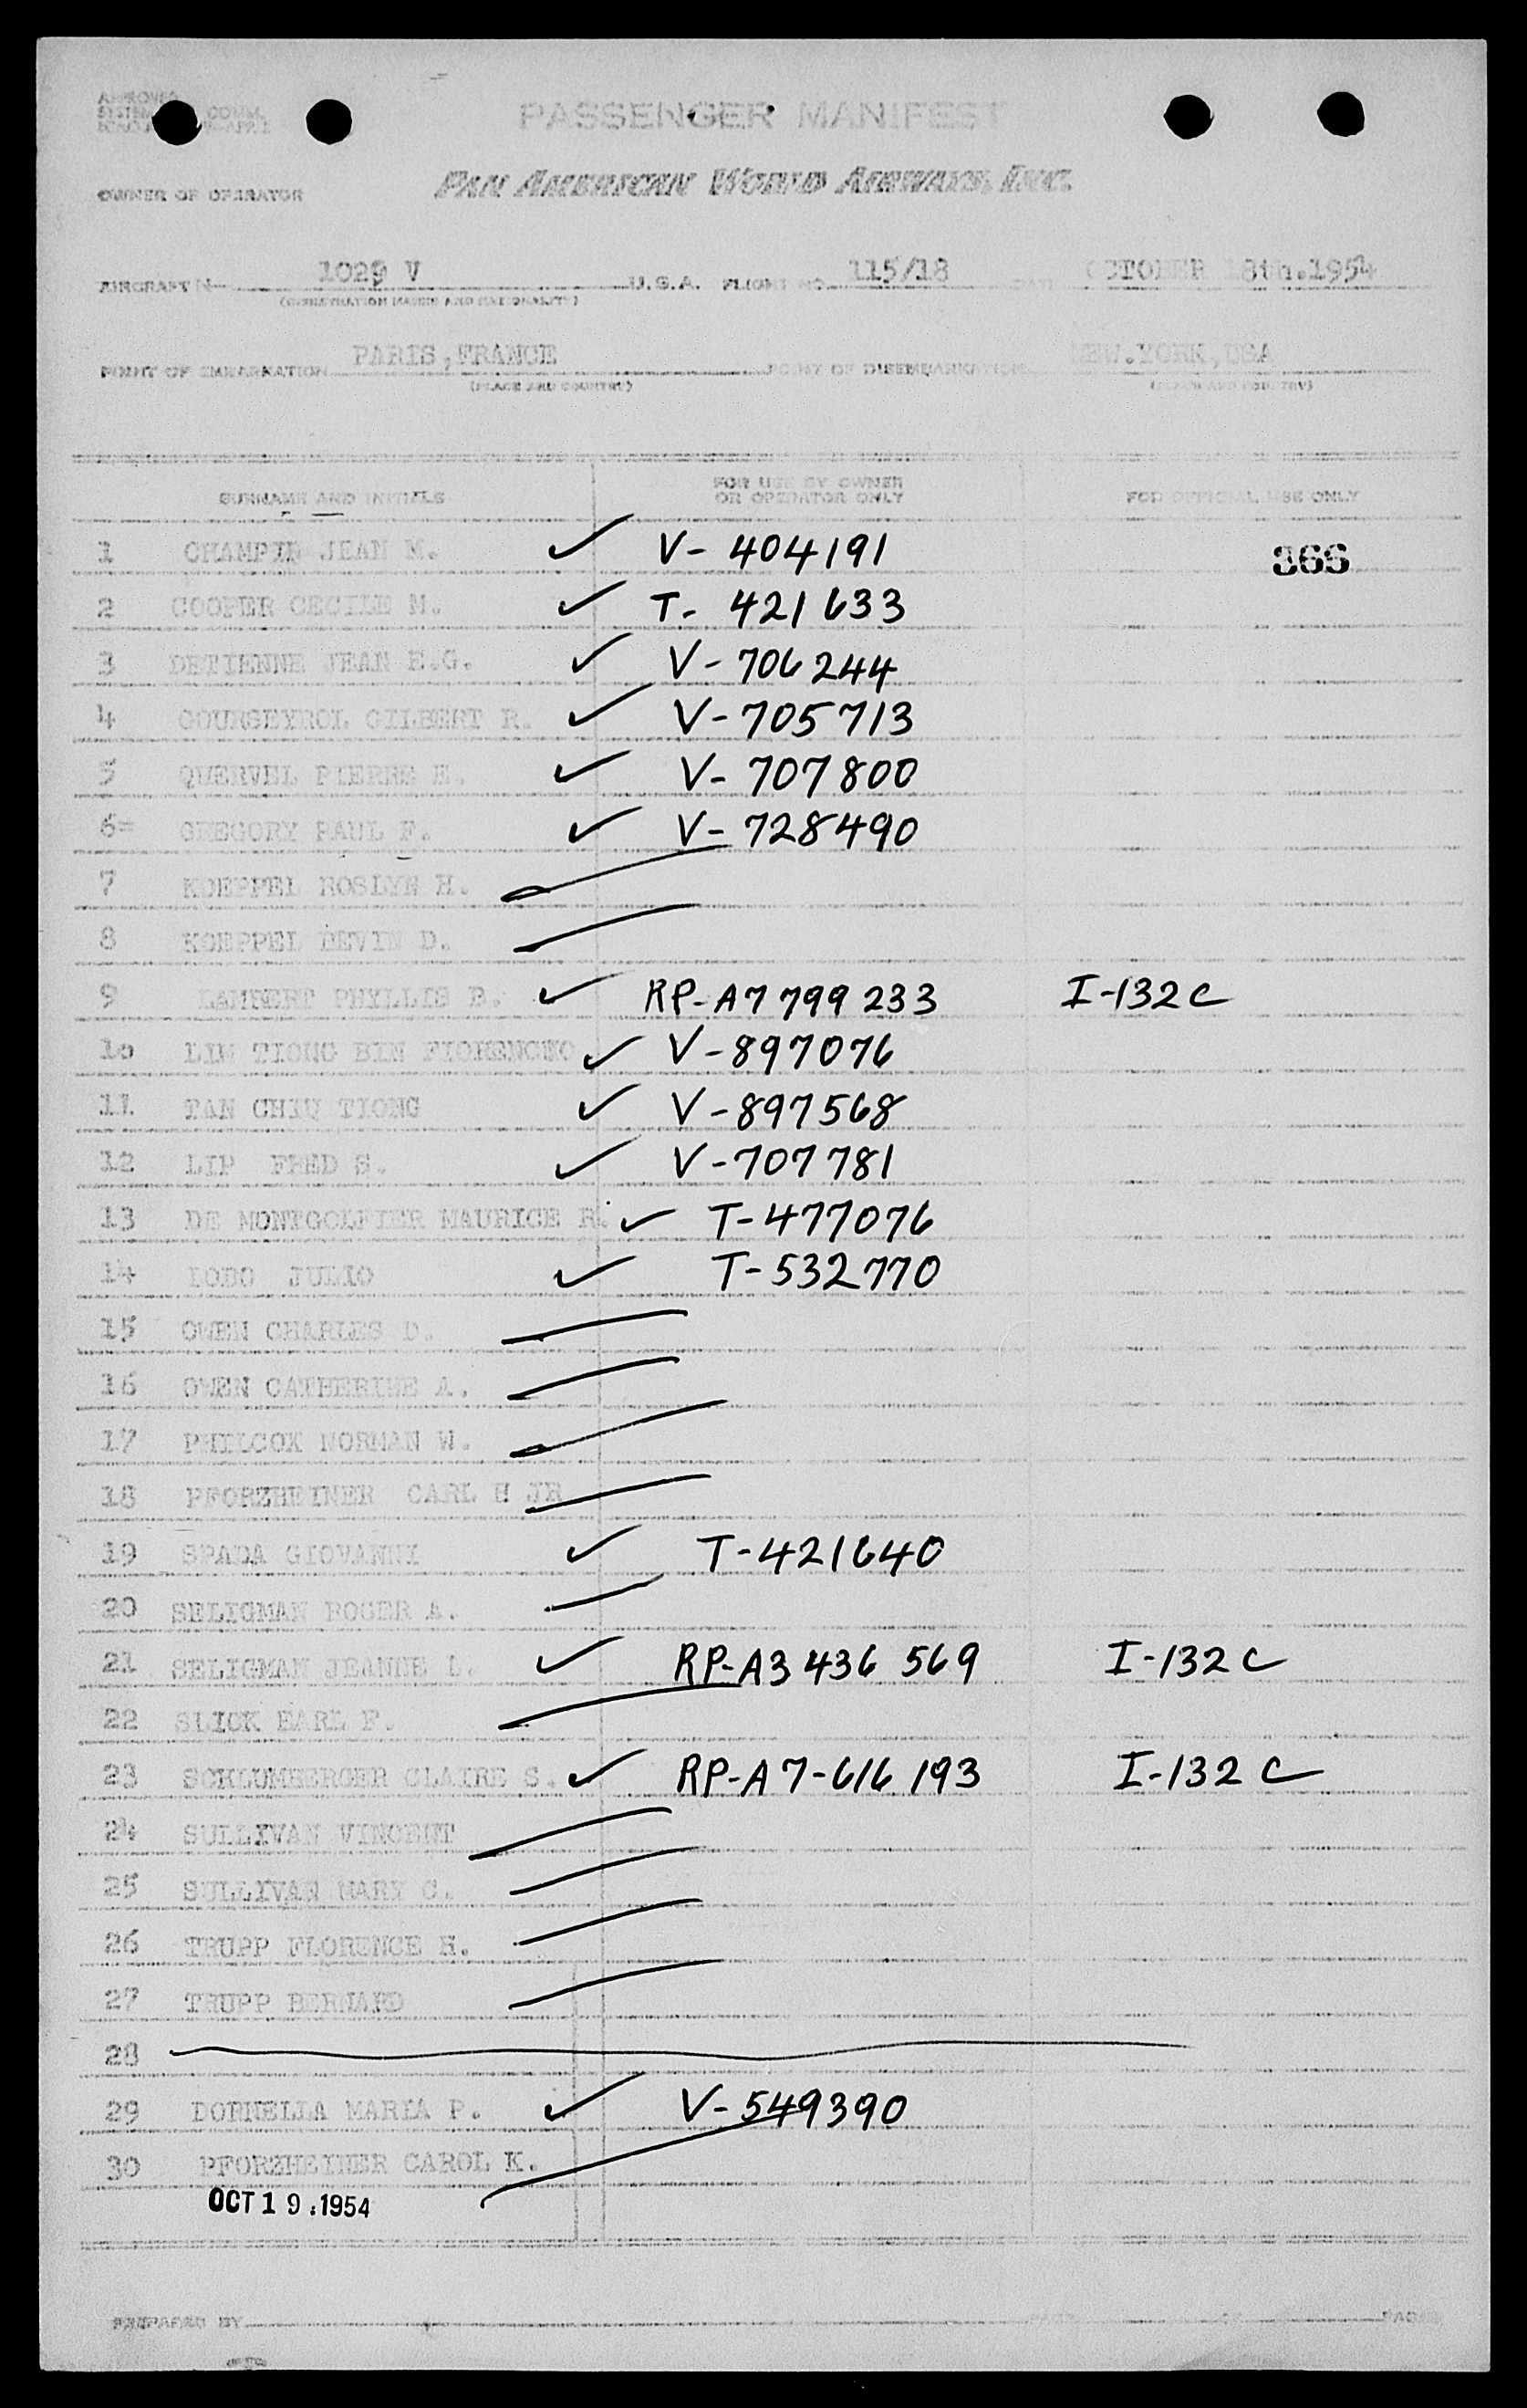 APPROVED
PASSENGER MANIFEST
OWNER OR OPERATOR PAN AMERICAN WORLD AIRWAYS, INC.
AIRCRAFT N- 1029 V U.S.A. FLIGHT NO. 115/18 DATE OCTOBER 18th.1954
(REGISTRATION MARKS AND NATIONALITY)
POINT OF EMBARKATION PARIS,FRANCE POINT OF DISEMBARKATION NEW.YORK,USA
(PLACE AND COUNTRY) (PLACE AND COUNTRY)
SURNAME AND INITIALS FOR USE BY OWNER OR OPERATOR ONLY FOR OFFICIAL USE ONLY
1 CHAMPIN JEAN M. ✓ V- 404191 366
2 COOPER CECILE M. ✓ T- 421633
3 DETIENNE JEAN E.G. ✓ V-706244
4 COURSEYROL GILBERT R. ✓ V-705713
5 QUERVEL PIERRE E. ✓ V-707800
6= GREGORY PAUL F. ✓ V-728490
7 KOEPPEL ROSLYN H.
8 KOEPPEL DEVIN D.
9 LAMBERT PHYLLIS B. ✓ RP-A7 799 233 I-132C
10 LIM TIONG BIN ✓ V-897076
11. TAN CHIU TIONG ✓ V-897568
12 LIP FRED S. ✓ V-707781
13 DE MONTGOLFIER MAURICE R. ✓ T-477076
14 LOBO JULIO ✓ T-532770
15 OWEN CHARLES D.
16 OWEN CATHERINE A.
17 PHILCOX NORMAN W.
18 PFORZHEIMER CARL H JR
19 SPADA GIOVANNI ✓ T-421640
20 SELIGMAN ROGER A.
21 SELIGMAN JEANNE L. ✓ RP-A3 436 569 I-132C
22 SLICK EARL F.
23 SCHLUMBERGER CLAIRE S. ✓ RP-A7-616 193 I-132C
24 SULLIVAN VINCENT
25 SULLIVAN MARY C.
26 TRUPP FLORENCE H.
27 TRUPP BERNARD
28
29 DORNELLA MARIA P. ✓ V-549390
30 PFORZHEIMER CAROL K.
OCT 19.1954
PREPARED BY PAGE OF PAGES